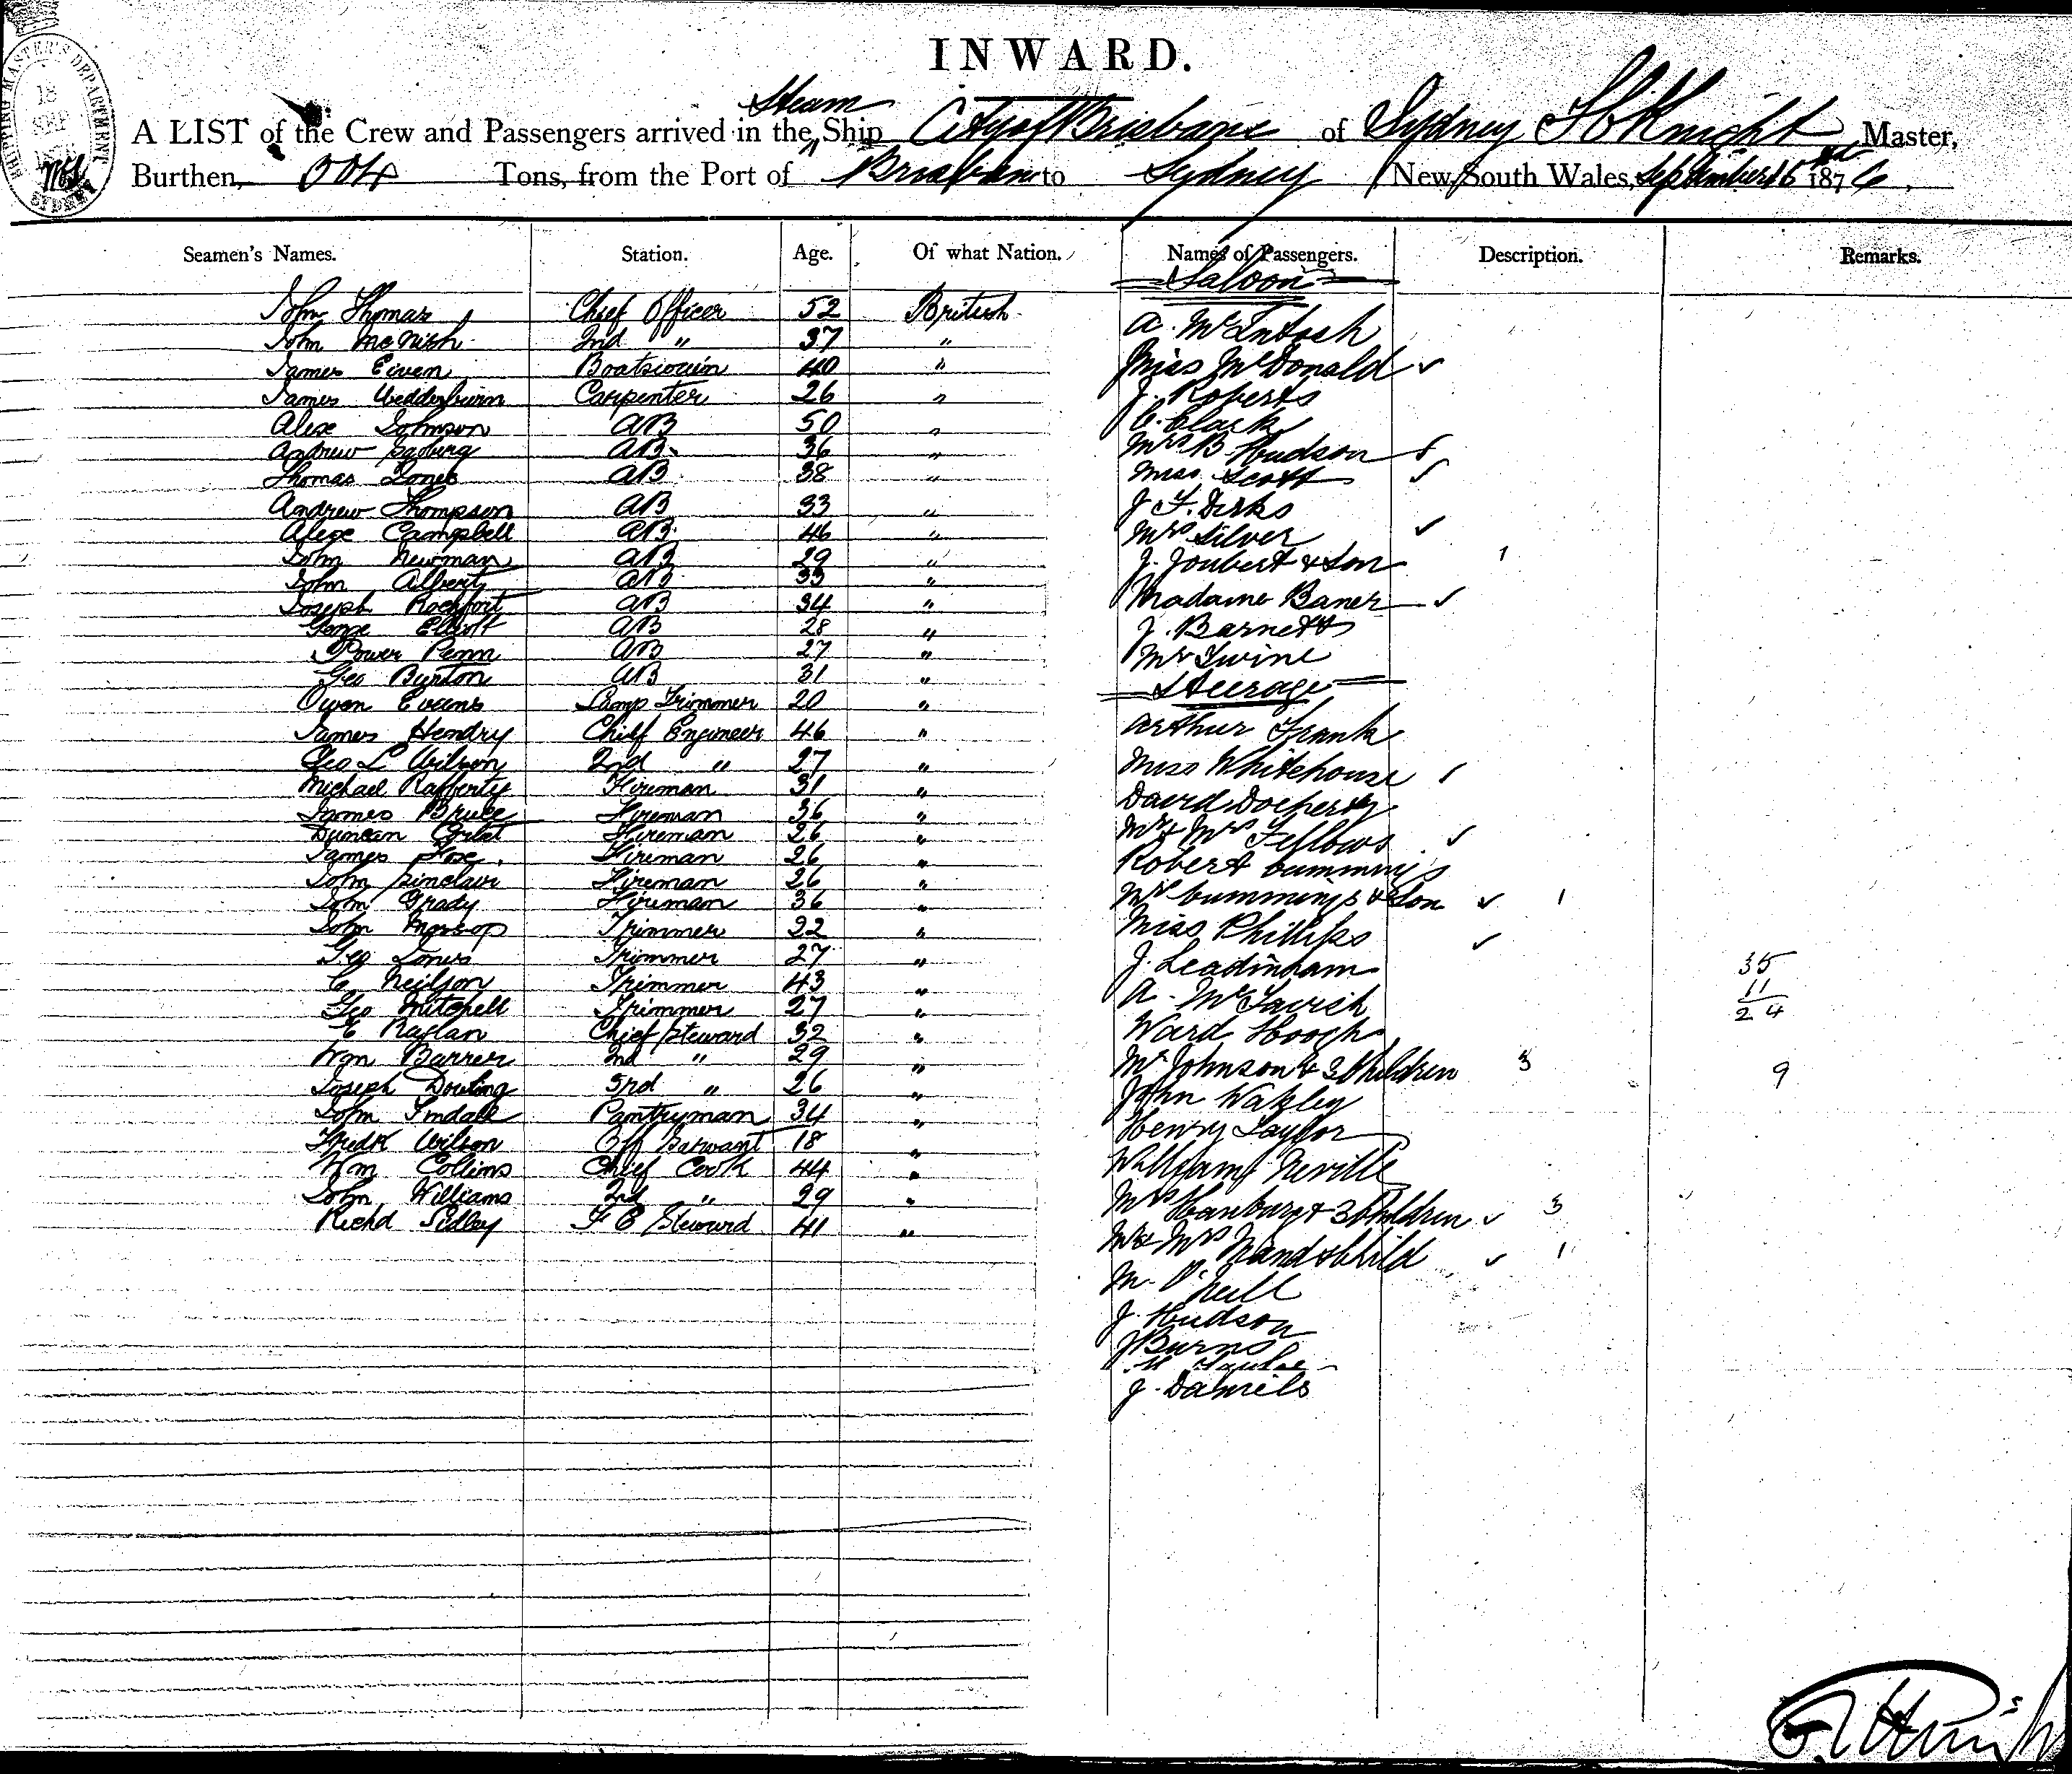 INWARD.
SHIPPING MASTER'S DEPARTMENT
18
SEP
SYDNEY
A LIST of the Crew and Passengers arrived in the Steam Ship City of Brisbane of Sydney Knight Master,
Burthen, 504 Tons, from the Port of Brisbane to Sydney New South Wales, September 16 1876
Seamen's Names. Station. Age. Of what Nation. Names of Passengers. Description. Remarks.
Saloon
John Thomas Chief Officer 52 British A. McIntosh
John McNish 2nd " 37 " Miss McDonald ✓
James Ewen Boatswain 40 " J. Roberts
James Wedderburn Carpenter 26 " C. Clark
Alex Johnson AB 50 " Mrs B Hudson ✓
Andrew AB 36 " Miss Scott ✓
Thomas Jones AB 38 " J F. Dirks
Andrew Thompson AB 33 " Mrs Silver ✓
Alex Campbell AB 46 " J. Joubert & Son 1
John Newman AB 29 " Madame Baner ✓
John Albert AB 33 " J. Barnett
Joseph Rochfort AB 34 " Mr Twine
George Elliott AB 28 "
Power Penn AB 27 "
Geo Burton AB 31 " Steerage
Owen Evans Lamp Trimmer 20 "
James Hendry Chief Engineer 46 " Arthur Frank
Geo L Wilson 2nd " 27 " Miss Whitehouse ✓
Michael Rafferty Fireman 31 " David Docherty
James Bruce Fireman 36 " Mr & Mrs Fellows ✓
Duncan Fireman 26 " Robert Cummings
James Rose Fireman 26 " Mrs Cummings & Son ✓ 1
John Sinclair Fireman 26 " Miss Phillips ✓
John Grady Fireman 36 " J. Leadinham
John Trimmer 22 " A. McTavish
Geo Jones Trimmer 27 " Ward Hoogh
C Neilson Trimmer 43 " Mr Johnson & 3 Children 3
Geo Mitchell Trimmer 27 " John Wakley
E Raglan Chief Steward 32 " Henry Taylor
Wm Barrer 2nd " 29 " William Neville
Joseph Dowling 3rd " 26 " Mrs Hanbury & 3 Children ✓ 3
John Tindall Pantryman 34 " Mr & Mrs & Child ✓ 1
Fredk Wilson Off Servant 18 " M. O'Neill
Wm Collins Chief Cook 44 " J. Hudson
John Williams 2nd " 29 " J Burns
Richd Sidley F C Steward 41 "
J. Daniels
35
11
24
9